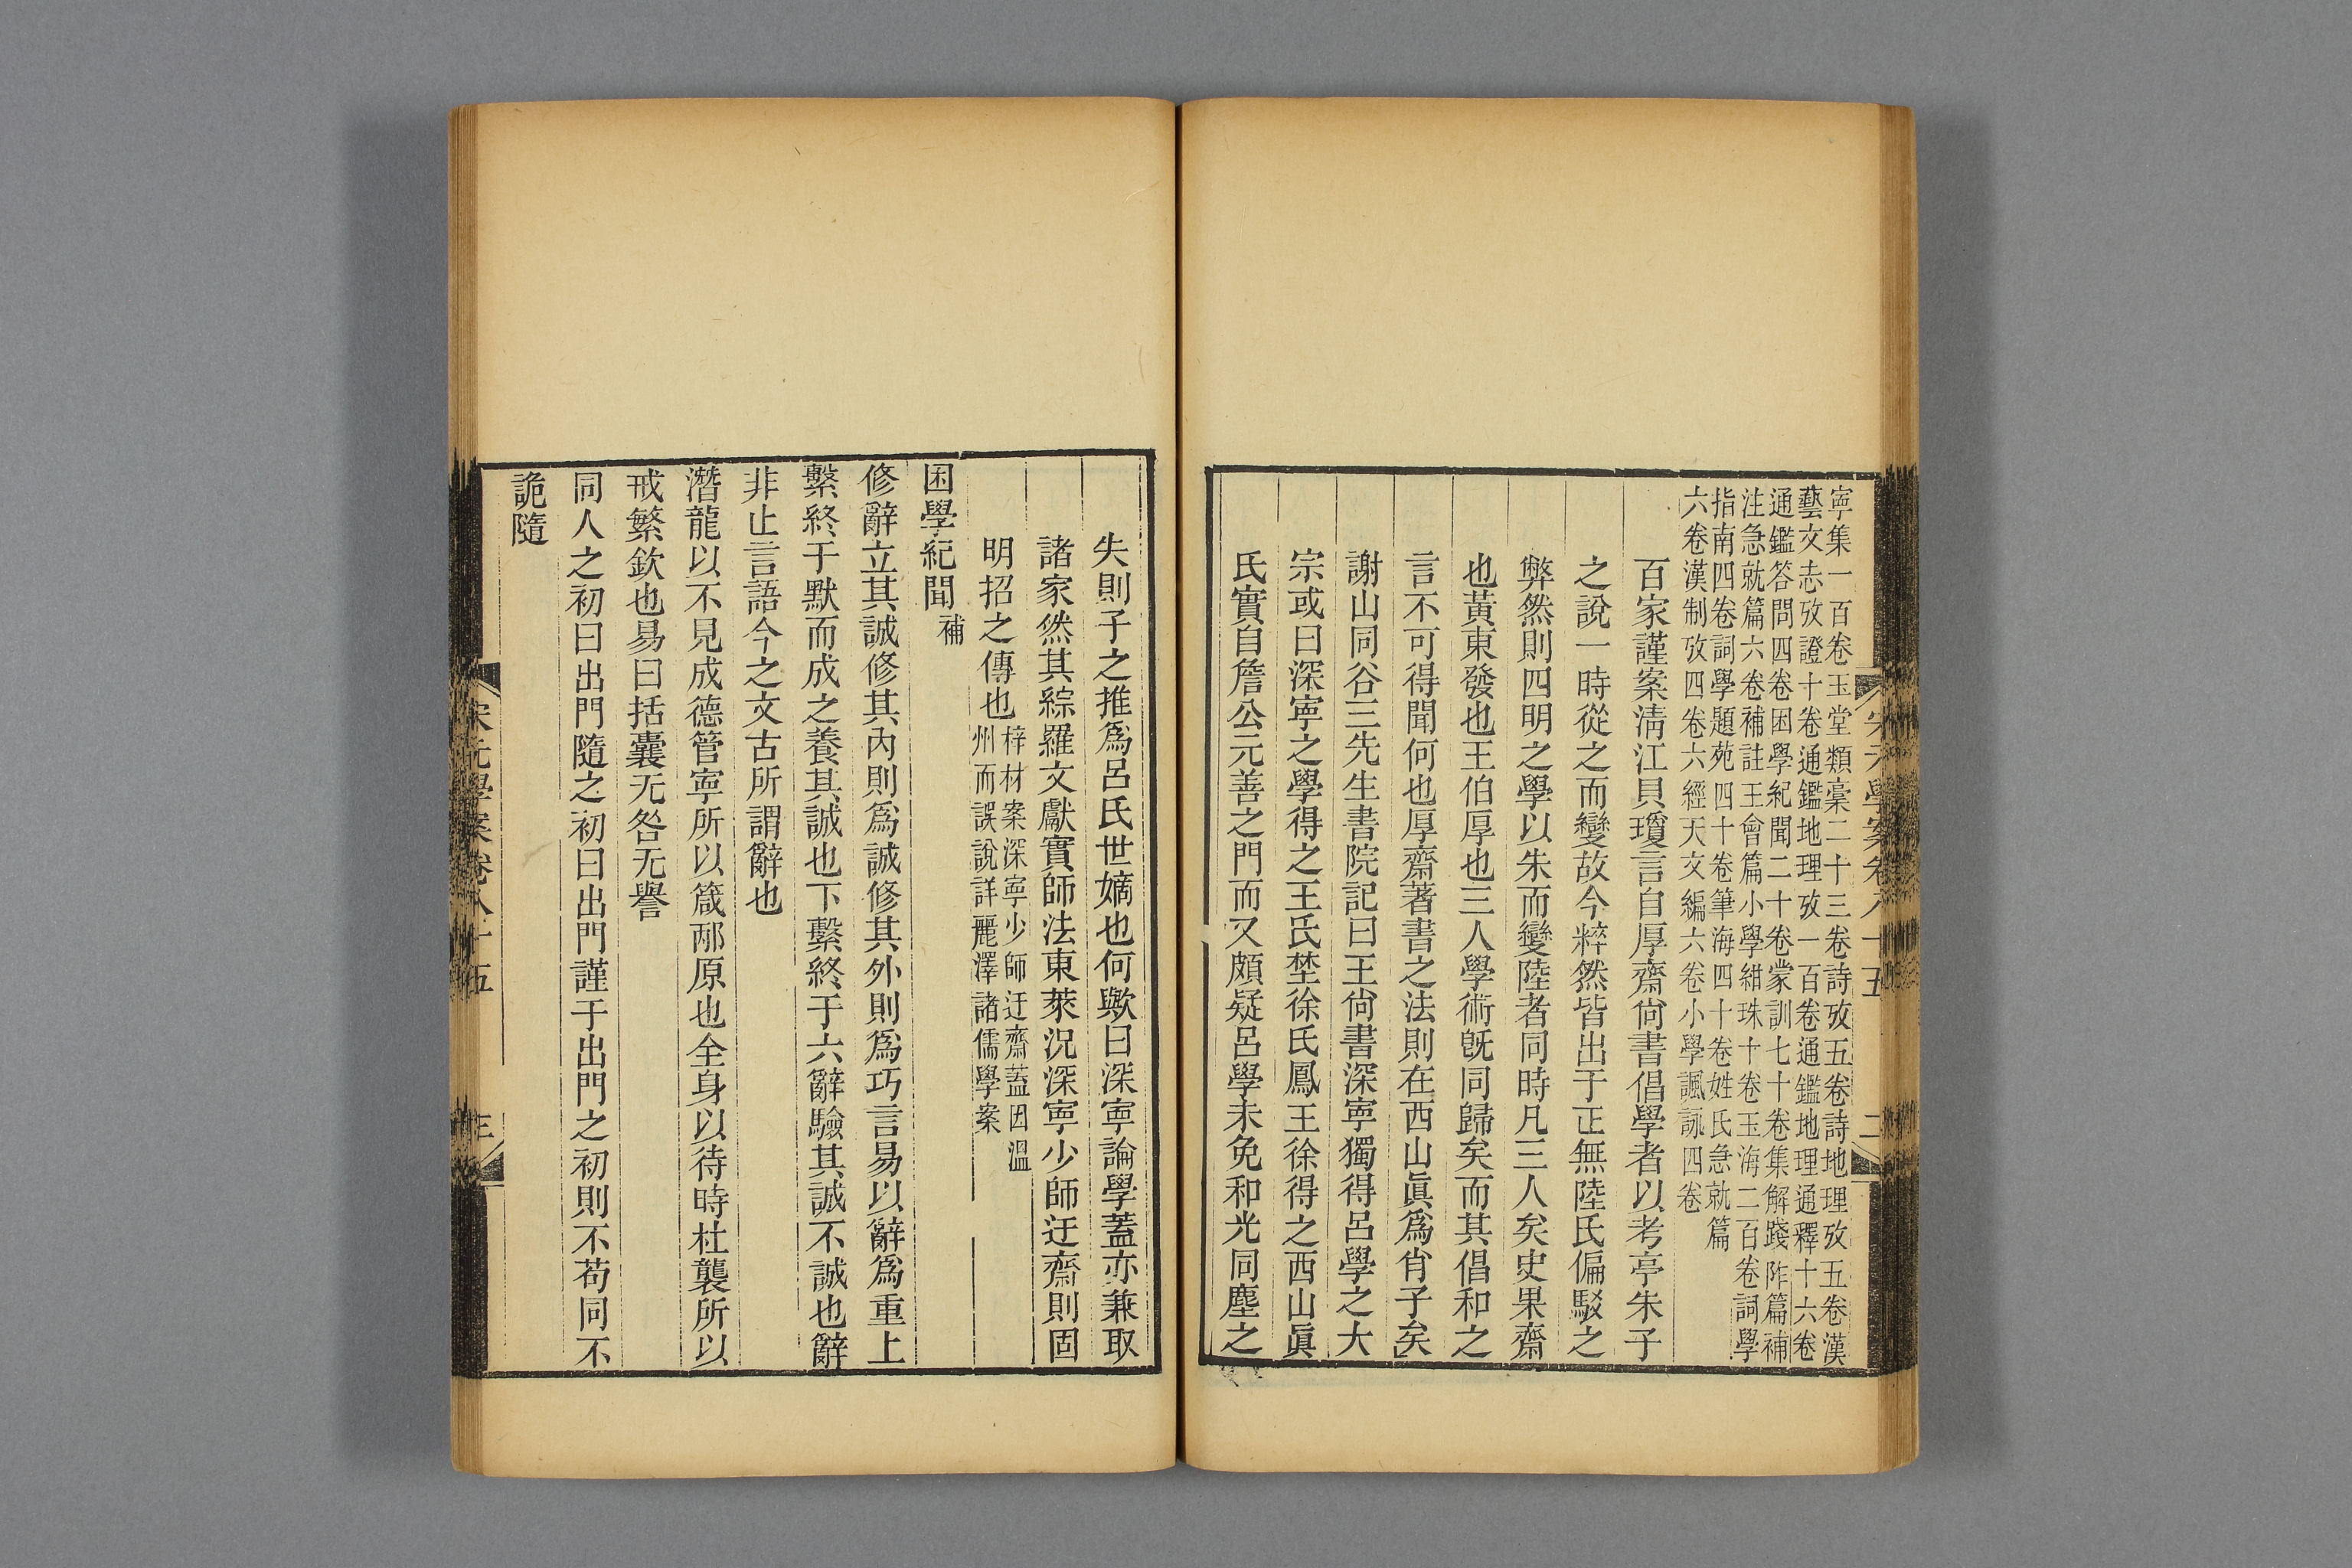 寧集一百卷玉堂類藁二十三卷詩攷五卷詩地理攷五卷漢
藝文志攷證十卷通鑑地理攷一百卷通鑑地理通釋十六卷
通鑑答問四卷困學紀聞二十卷蒙訓七十卷集解踐阼篇補
注急就篇六卷補註王會篇小學紺珠十卷玉海二百卷詞學
指南四卷詞學題苑四十卷筆海四十卷姓氏急就篇
六卷漢制攷四卷六經天文編六卷小學諷詠四卷
百家謹案淸江貝瓊言自厚齋尙書倡學者以考亭朱子
之說一時從之而變故今粹然皆出于正無陸氏偏駁之
弊然則四明之學以朱而變陸者同時凡三人矣史果齋
也黃東發也王伯厚也三人學術旣同歸矣而其倡和之
言不可得聞何也厚齋著書之法則在西山眞爲肖子矣
謝山同谷三先生書院記曰王尙書深寧獨得呂學之大
宗或曰深寧之學得之王氏埜徐氏鳳王徐得之西山眞
氏實自詹公元善之門而又頗疑呂學未免和光同塵之
宋元學案卷八十五
二
失則子之推爲呂氏世嫡也何歟曰深寧論學蓋亦兼取
諸家然其綜羅文獻實師法東萊況深寧少師迂齋則固
明招之傳也
梓材案深寧少師迂齋蓋因溫
州而誤說詳麗澤諸儒學案
困學紀聞補
修辭立其誠修其內則爲誠修其外則爲巧言易以辭爲重上
繫終于默而成之養其誠也下繫終于六辭驗其誠不誠也辭
非止言語今之文古所謂辭也
潛龍以不見成德管寧所以箴邴原也全身以待時杜襲所以
戒繁欽也易曰括囊无咎无譽
同人之初曰出門隨之初曰出門謹于出門之初則不苟同不
詭隨
宋元學案卷八十五
三